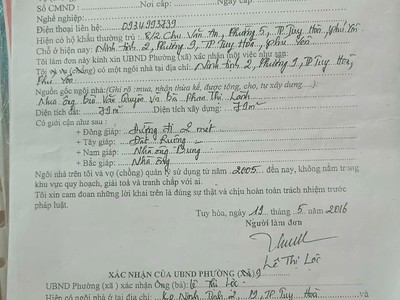 Số CMND Nơi cấp: Ngày cấp
Nghề nghiệp:
Điện thoại liên hệ: 0934993739
Hiện có hộ khẩu thường trú: 8/2 Chu Văn An, Phường 5, TP Tuy Hoà, Phú Yên
Chỗ ở hiện nay: Ninh Tịnh 2, Phường 9, TP Tuy Hoà, Phú Yên
Tôi làm đơn này kính xin UBND Phường (xã) xác nhận một việc như sau:
Tôi và vợ (chồng) có một ngôi nhà tại địa chỉ: Ninh Tịnh 2, Phường 9, TP Tuy Hoà
Phú Yên
Nguồn gốc ngôi nhà: (Ghi rõ : mua, nhận thừa kế, được tặng, cho, tự xây dựng ....)
Mua ông Văn Quyền và bà Phan Thị Lành
Diện tích đất: 79 m² Diện tích xây dựng: 79 m²
Có giới cận như sau :
+ Đông giáp: đường đi 2 mét
+ Tây giáp: Đất Ruộng
+ Nam giáp: Nhà ông Trung
+ Bắc giáp: Nhà ông
Ngôi nhà trên tôi và vợ (chồng) quản lý sử dụng từ năm 2005 đến nay, không nằm trong
khu vực quy hoạch, giải toả và tranh chấp với ai.
Tôi xin cam đoan những lời khai trên là đúng sự thật và chịu hoàn toàn trách nhiệm trước
pháp luật.
Tuy hòa, ngày 19 tháng 5 năm 2016
Người làm đơn
Lê Thị Lộc
XÁC NHẬN CỦA UBND PHƯỜNG (XÃ) 9
UBND Phường (xã) xác nhận Ông (bà): Lê Thị Lộc
Hiện có ngôi nhà ở tại địa chỉ: Kp Ninh Tịnh 2 9, TP Tuy Hoà